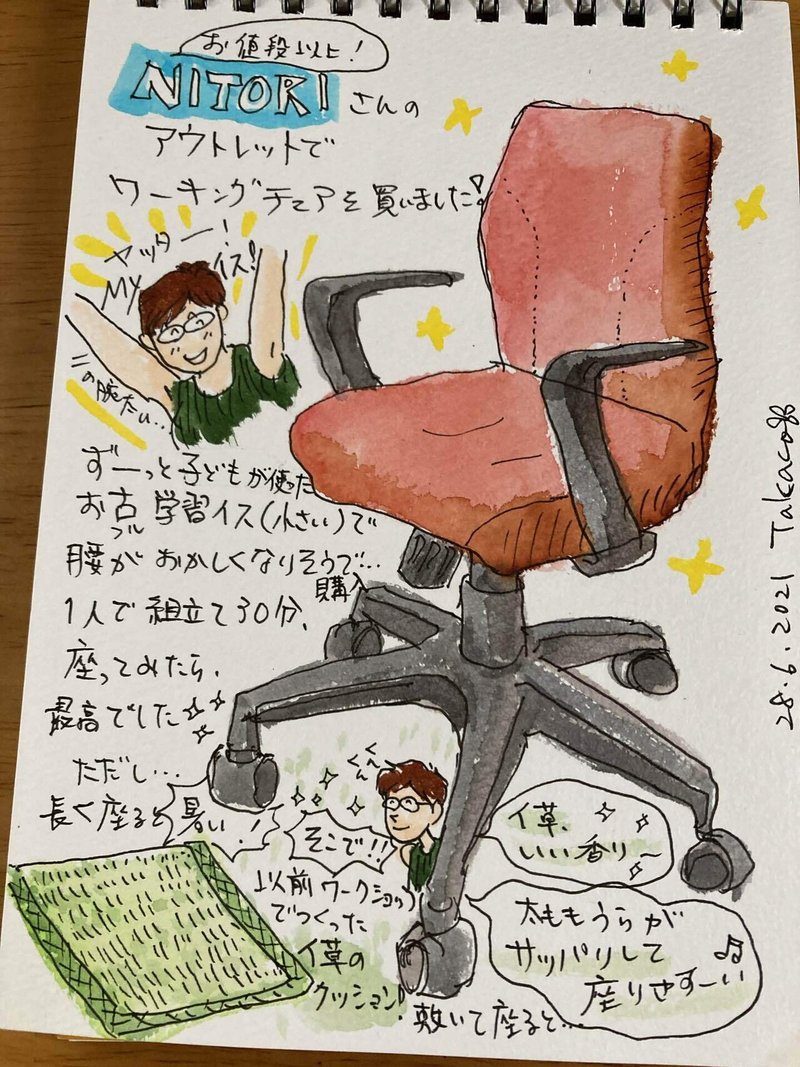 お値段以上!
NITORIさんの
アウトレットで
ワーキングチェアを買いました!
ヤッター!
MYイス!
二の腕たい…
ずーっと子どもが使った
お古学習イス(小さい)で
フル
腰がおかしくなりそうで…
購入
1人で組立て30分、
座ってみたら、
最高でした
ただし…
長く座ると暑い!
そこで!!
くんくん
以前ワークショップ
でつくった
イ草の
クッション!
敷いて座ると…
イ草、
いい香り〜
太ももうらが
サッパリして
座りやすーい♫
28.6.2021 Takaco